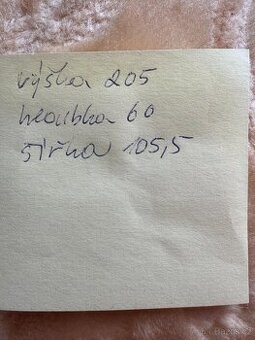 výška 205
hloubka 60
šířka 105,5